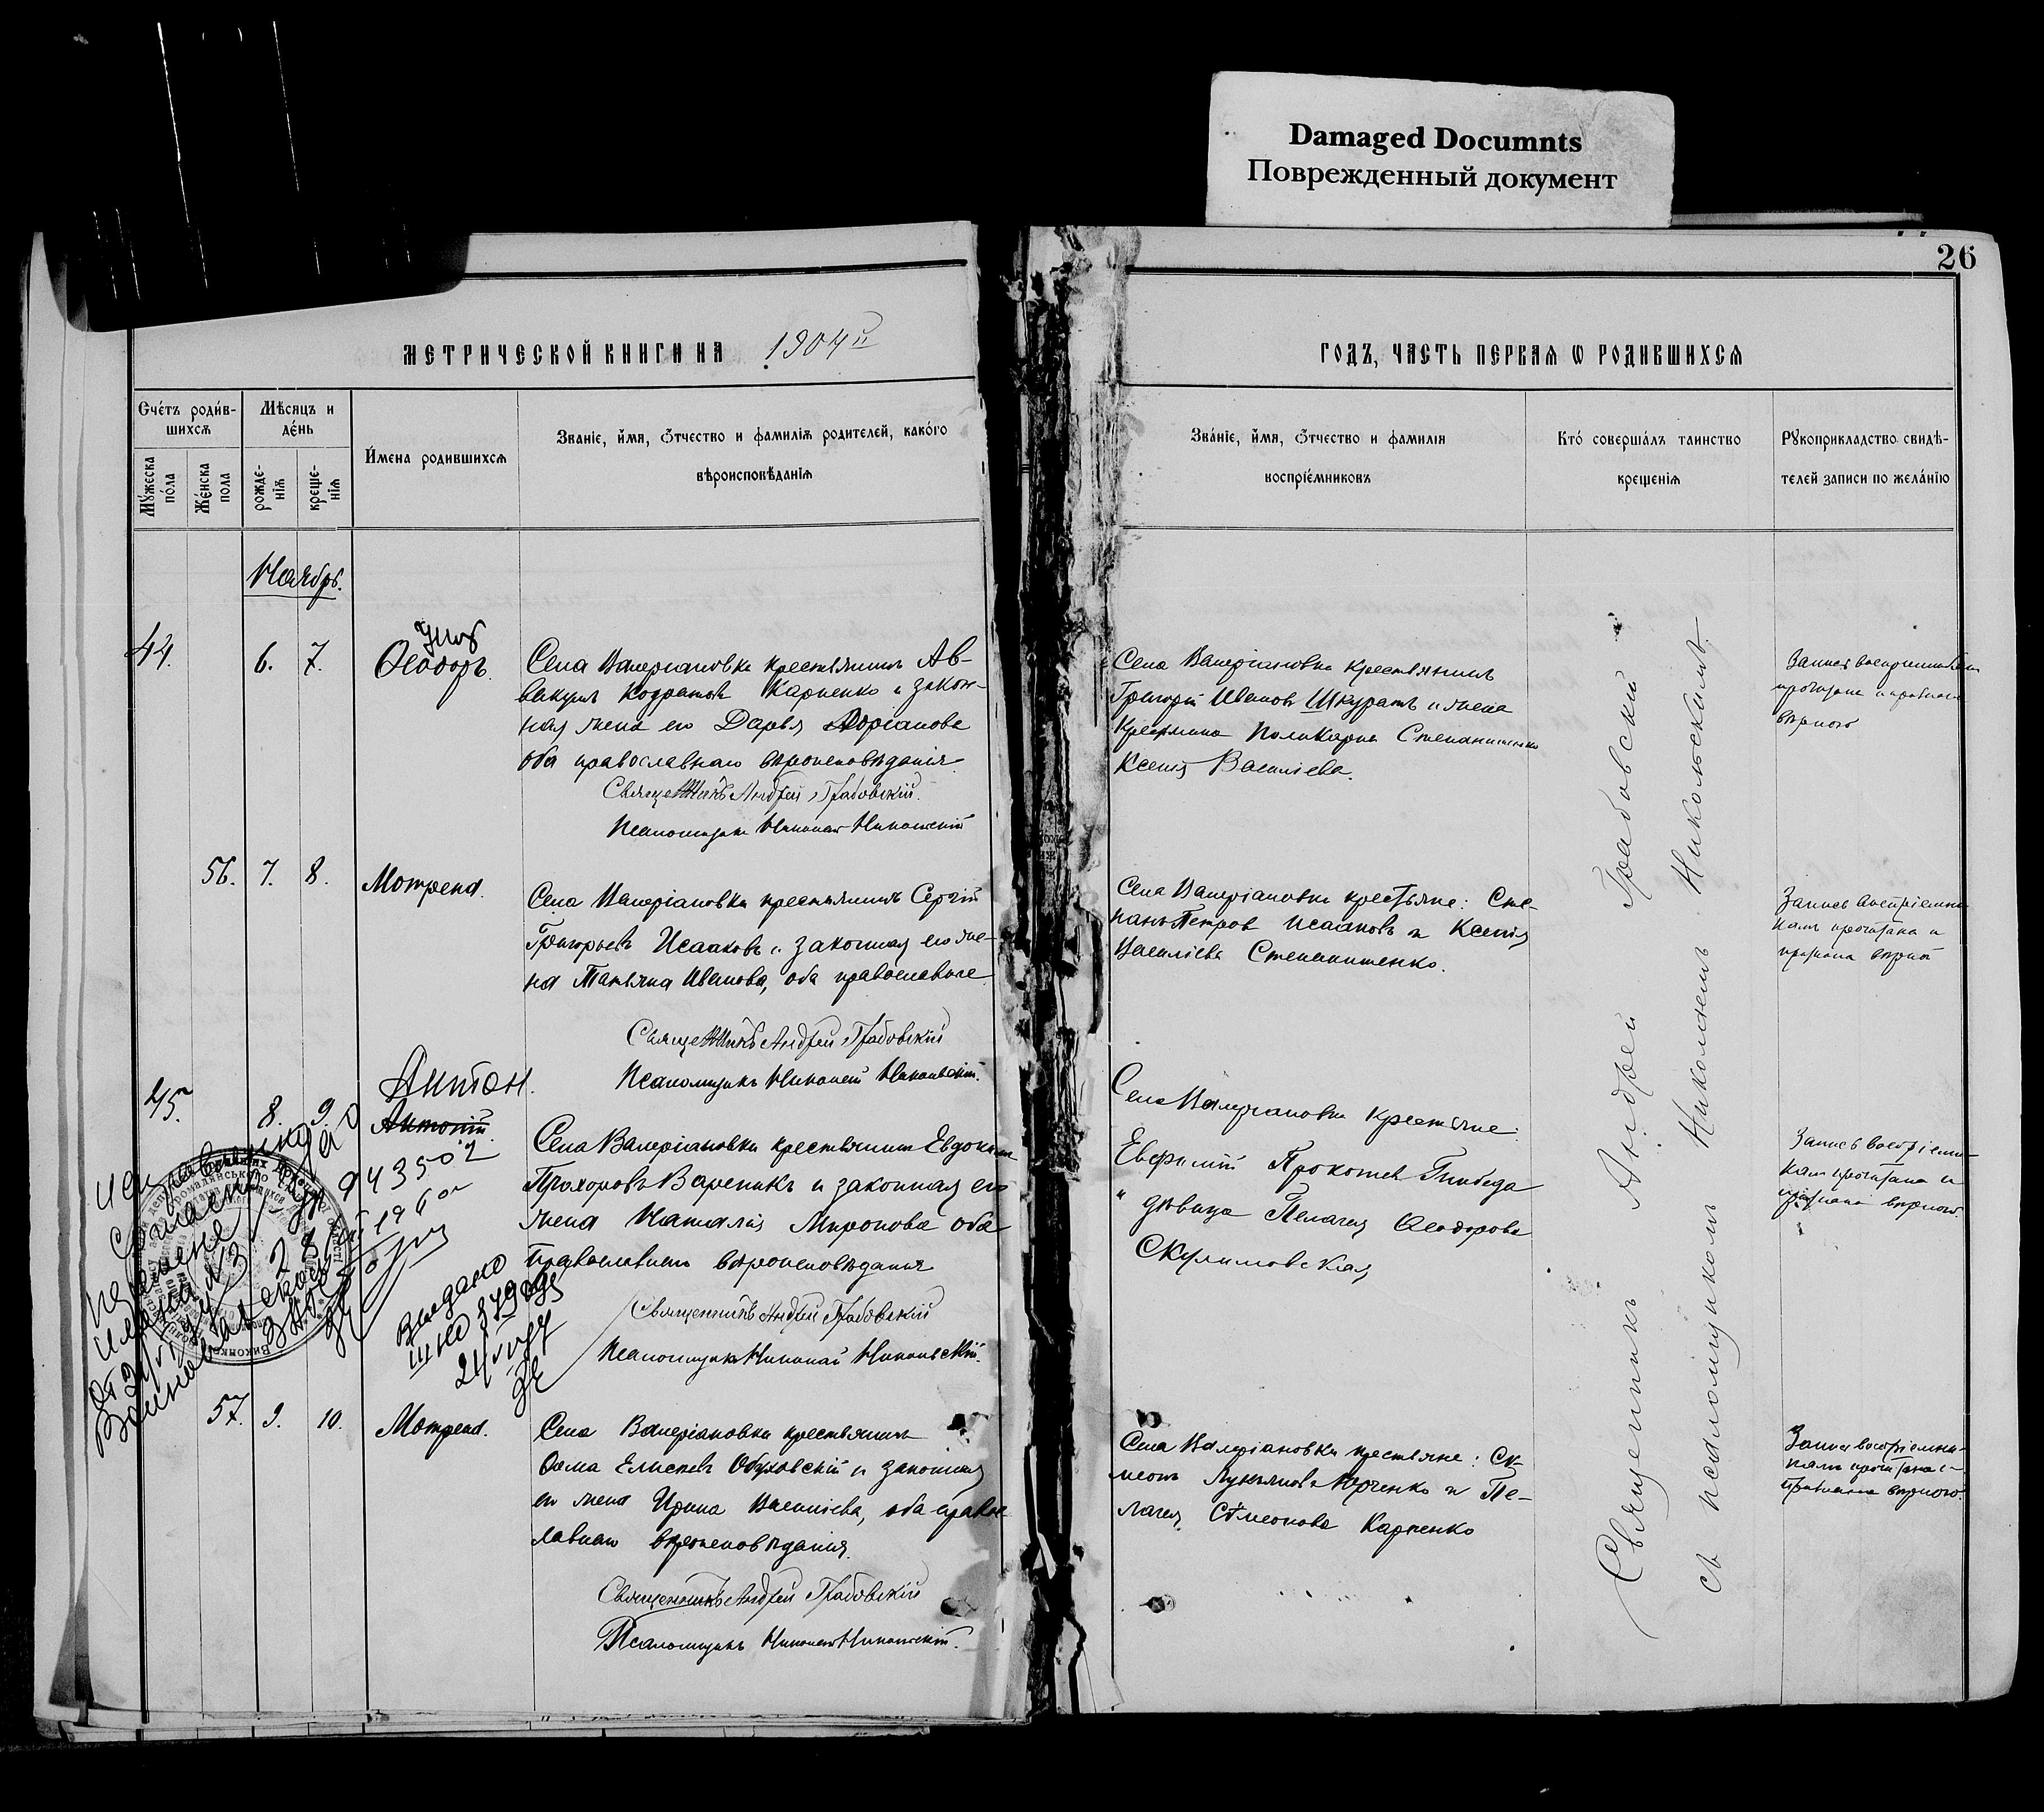 Damaged Documnts
Поврежденный документ
26
МЕТРИЧЕСКОЙ КНИГИ НА 1904й
ГОДЪ, ЧАСТЬ ПЕРВАЯ Ѡ РОДИВШИХСЯ
Счетъ родив-
шихся
Мужеска
пола
Женска
пола
Мѣсяцъ и
день
рожде-
нія
креще-
нія
Имена родившихся
Званіе, имя, отчество и фамилія родителей, какого
вѣроисповѣданія
Званіе, имя, отчество и фамилія
воспріемниковъ
Кто совершалъ таинство
крещенія
Рукоприкладство свидѣ-
телей записи по желанію
Ноябрь.
44. 6. 7. Ѳеодоръ.
Села Валеріановки крестьянинъ Ав-
вакумъ Кодратовъ Карпенко и закон-
ная жена его Дарья Адріанова
оба православнаго вѣроисповѣданія.
Священникъ Андрей Грабовскій.
Псаломщикъ Николай Никольскій
Села Валеріановки крестьянинъ
Григорій Ивановъ Шкуратъ и жена
крестьянина Поликарпа Степаниченко
Ксенія Васильева.
Запись воспріемникам
прочитана и признана
вѣрною
56. 7. 8. Мотрена.
Села Валеріановки крестьянинъ Сергій
Григорьевъ Исааковъ и законная его же-
на Татьяна Иванова, оба православные
Священникъ Андрей Грабовскій
Псаломщикъ Николай Никольскій.
Села Валеріановки крестьяне: Сте-
панъ Петровъ Исааковъ и Ксенія
Василіева Степаниченко.
Запись воспріемни-
камъ прочитана и
признана вѣрной
Антон.
45. 8. 9. Антоній.
Села Валеріановки крестьянинъ Евдокимъ
Прохоровъ Вареникъ и законная его
жена Наталія Миронова оба
православнаго вѣроисповѣданія
Священникъ Андрей Грабовскій
Псаломщикъ Николай Никольскій.
Села Валеріановки крестьяне:
Евфимій Прокопіевъ Гнибеда
и дѣвица Пелагея Ѳеодорова
Скулимовская
Запись воспріемни-
камъ прочитана и
признана вѣрною.
исправлено
согласно
имени
943502
28
Выдано
57. 9. 10. Мотрена.
Села Валеріановки крестьянинъ
Ѳома Елисеевъ Обуховскій и законная
его жена Ирина Василіева, оба правос-
лавнаго вѣроисповѣданія.
Священникъ Андрей Грабовскій
Псаломщикъ Николай Никольскій.
Села Валеріановки крестьяне: Си-
меонъ Лукьяновъ Юрченко и Пе-
лагея Симеонова Карпенко
Запись воспріемни-
камъ прочитана и
признана вѣрною.
Священникъ Андрей Грабовскій
съ псаломщикомъ Николаемъ Никольскимъ